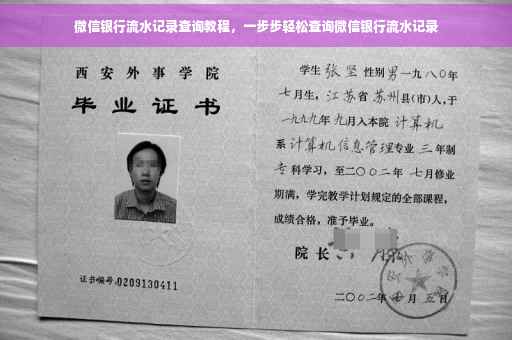 微信银行流水记录查询教程，一步步轻松查询微信银行流水记录
西安外事学院
毕业证书
证书编号:0209130411
学生 张坚 性别男一九八〇年
七月生，江苏省 苏州县(市)人,于
一九九九年 九月入本院 计算机
系 计算机信息管理专业 三 年制
专科学习，至二〇〇二年 七月修业
期满，学完教学计划规定的全部课程，
成绩合格，准予毕业。
院长
二〇〇二年 月 五日